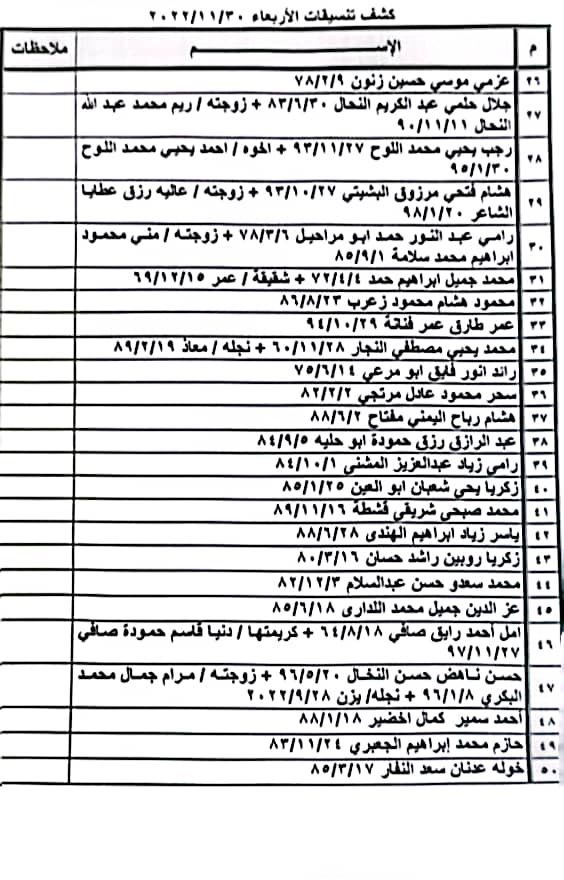 كشف تنسيقات الأربعاء ٢٠٢٢/١١/٣٠
م الإســـــم ملاحظات
٢٦ عزمي موسي حسين زنون ٧٨/٢/٩
٢٧ جلال حلمي عبد الكريم النحال ٨٣/٦/٣٠ + زوجته / ريم محمد عبد الله
النحال ٩٠/١١/١١
٢٨ رجب يحيي محمد اللوح ٩٣/١١/٢٧ + اخوه / احمد يحيي محمد اللوح
٩٥/١/٣٠
٢٩ هشام فتحي مرزوق البشيتي ٩٣/١٠/٢٧ + زوجته / عاليه رزق عطايا
الشاعر ٩٨/١/٢٠
٣٠ رامي عبد النور حمد ابو مراحيل ٧٨/٣/٦ + زوجته / مني محمود
ابراهيم محمد سلامة ٨٥/٩/١
٣١ محمد جميل ابراهيم حمد ٧٢/٤/٤ + شقيقة / عمر ٦٩/١٢/١٥
٣٢ محمود هشام محمود زعرب ٨٦/٨/٢٣
٣٣ عمر طارق عمر فنانة ٩٤/١٠/٢٩
٣٤ محمد يحيي مصطفي النجار ٦٠/١١/٢٨ + نجله / معاذ ٨٩/٢/١٩
٣٥ رائد انور فايق ابو مرعي ٧٥/٦/١٤
٣٦ سحر محمود عادل مرتجي ٨٢/٢/٢
٣٧ هشام رباح اليمني مفتاح ٨٨/٦/٢
٣٨ عبد الرازق رزق حمودة ابو حليه ٨٤/٩/٥
٣٩ رامي زياد عبدالعزيز المشنى ٨٤/١٠/١
٤٠ زكريا يحى شعبان ابو العين ٨٥/١/٢٥
٤١ محمد صبحي شريقي قشطة ٨٩/١١/١٦
٤٢ ياسر زياد ابراهيم الهندى ٨٨/٦/٢٨
٤٣ زكريا روبين راشد حسان ٨٠/٣/١٦
٤٤ محمد سعدو حسن عبدالسلام ٨٢/١٢/٣
٤٥ عز الدين جميل محمد اللدارى ٨٥/٦/١٨
٤٦ امل أحمد رايق صافي ٦٤/٨/١٨ + كريمتها / دنيا قاسم حمودة صافي
٩٧/١١/٢٧
٤٧ حسن ناهض حسن النخال ٩٦/٥/٢٠ + زوجته / مرام جمال محمد
البكري ٩٦/١/٨ + نجله/ يزن ٢٠٢٢/٩/٢٨
٤٨ أحمد سمير كمال اخضير ٨٨/١/١٨
٤٩ حازم محمد إبراهيم الجعبري ٨٣/١١/٢٤
٥٠ خوله عدنان سعد النفار ٨٥/٣/١٧